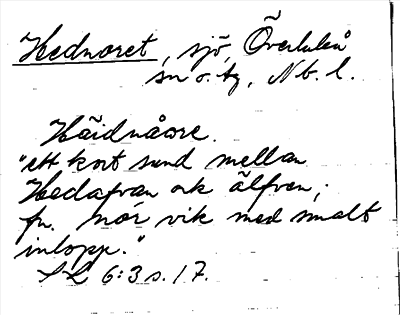 Hednoret, sjö, Överluleå
sn o. tg, Nb. l.
Häidnåore.
"ett kort sund mellan
Hedafvan ock älfven;
fn. nór vik med smalt
inlopp."
SL 6:3 s. 17.